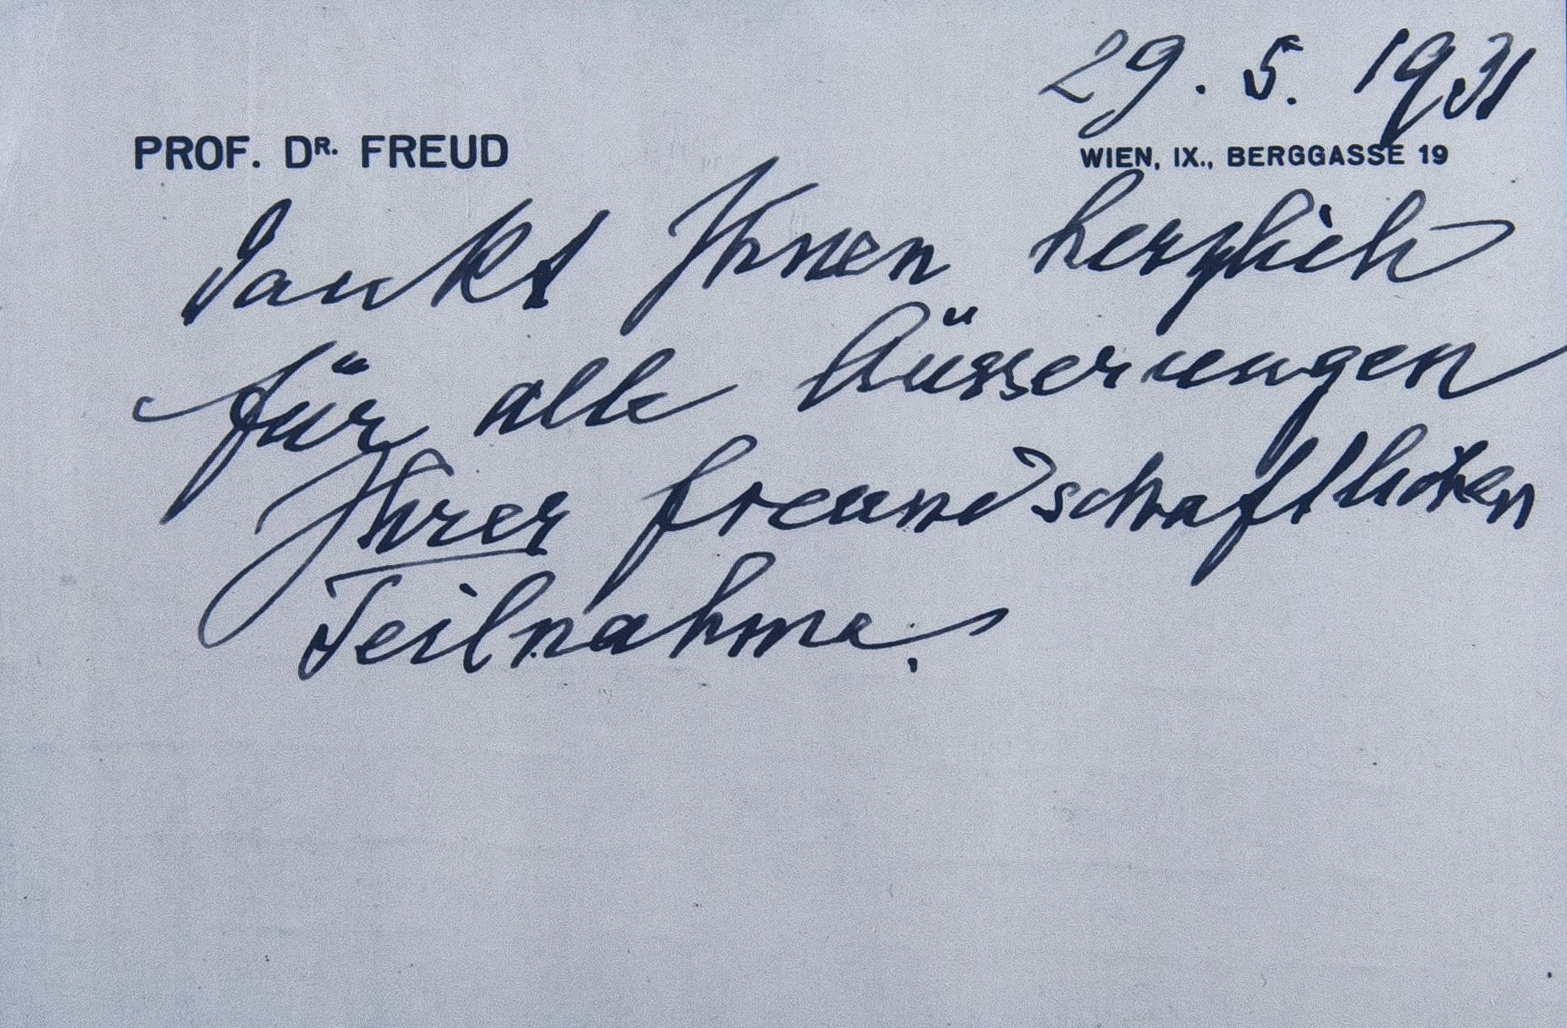 29. 5. 1931
PROF. DR. FREUD
WIEN, IX., BERGGASSE 19
dankt Ihnen herzlich
für alle Äüsserungen
Ihrer freundschaftlichen
Teilnahme.